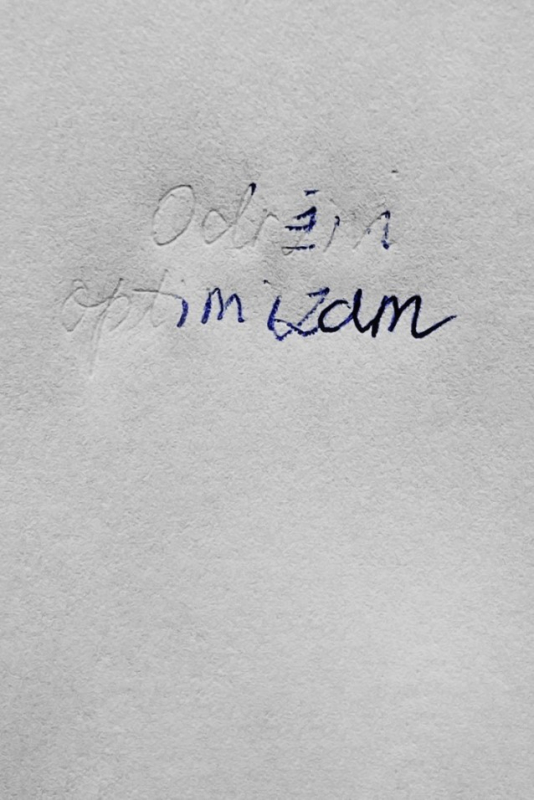 Održivi
optimizam